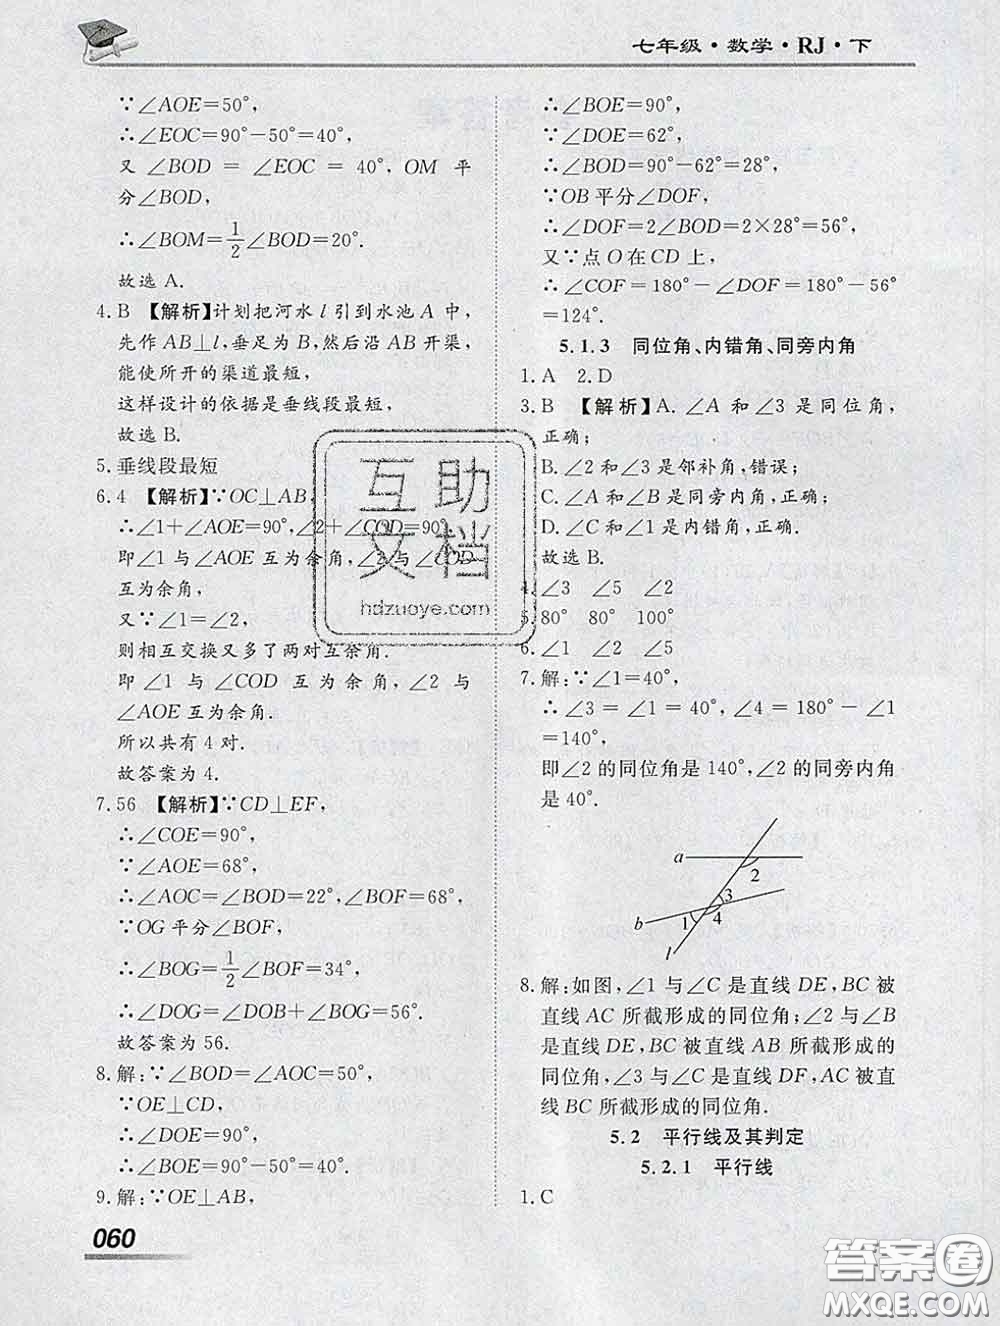 七年级·数学·RJ·下
∵∠AOE=50°,
∴∠EOC=90°-50°=40°,
又∠BOD = ∠EOC = 40°, OM 平
分∠BOD,
∴∠BOM=1/2∠BOD=20°.
故选 A.
4. B 【解析】计划把河水 l 引到水池 A 中,
先作 AB⊥l,垂足为 B,然后沿 AB 开渠,
能使所开的渠道最短,
这样设计的依据是垂线段最短,
故选 B.
5. 垂线段最短
6. 4 【解析】∵OC⊥AB,
∴∠1+∠AOE=90°,∠2+∠COD=90°,
即∠1 与∠AOE 互为余角,∠2 与∠COD
互为余角,
又∵∠1=∠2,
则相互交换又多了两对互余角.
即∠1 与∠COD 互为余角,∠2 与
∠AOE 互为余角.
所以共有 4 对.
故答案为 4.
7. 56 【解析】∵CD⊥EF,
∴∠COE=90°,
∵∠AOE=68°,
∴∠AOC=∠BOD=22°,∠BOF=68°,
∵OG 平分∠BOF,
∴∠BOG=1/2∠BOF=34°,
∴∠DOG=∠DOB+∠BOG=56°.
故答案为 56.
8. 解:∵∠BOD=∠AOC=50°,
∵OE⊥CD,
∴∠DOE=90°,
∴∠BOE=90°-50°=40°.
9. 解:∵OE⊥AB,
060
∴∠BOE=90°,
∵∠DOE=62°,
∴∠BOD=90°-62°=28°,
∵OB 平分∠DOF,
∴∠DOF=2∠BOD=2×28°=56°,
又∵点 O 在 CD 上,
∴∠COF=180°-∠DOF=180°-56°
=124°.
5.1.3 同位角、内错角、同旁内角
1. A 2. D
3. B 【解析】A. ∠A 和∠3 是同位角,
正确;
B. ∠2 和∠3 是邻补角,错误;
C. ∠A 和∠B 是同旁内角,正确;
D. ∠C 和∠1 是内错角,正确.
故选 B.
4. ∠3 ∠5 ∠2
5. 80° 80° 100°
6. ∠1 ∠2 ∠5
7. 解:∵∠1=40°,
∴∠3=∠1=40°,∠4=180°-∠1
=140°,
即∠2 的同位角是 140°,∠2 的同旁内角
是 40°.
a
2
3
b
1
4
l
8. 解:如图,∠1 与∠C 是直线 DE,BC 被
直线 AC 所截形成的同位角;∠2 与∠B
是直线 DE,BC 被直线 AB 所截形成的
同位角,∠3 与∠C 是直线 DF,AC 被直
线 BC 所截形成的同位角.
5.2 平行线及其判定
5.2.1 平行线
1. C
互助
文档
hdzuoye.com
答案圈
MXQE.COM